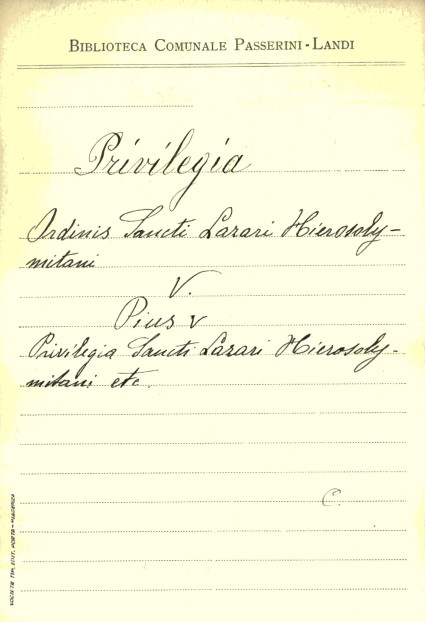 BIBLIOTECA COMUNALE PASSERINI-LANDI
Privilegia
Ordinis Sancti Lazari Hierosoly-
mitani
V.
Pius V
Privilegia Sancti Lazari Hierosoly-
mitani etc.
C.